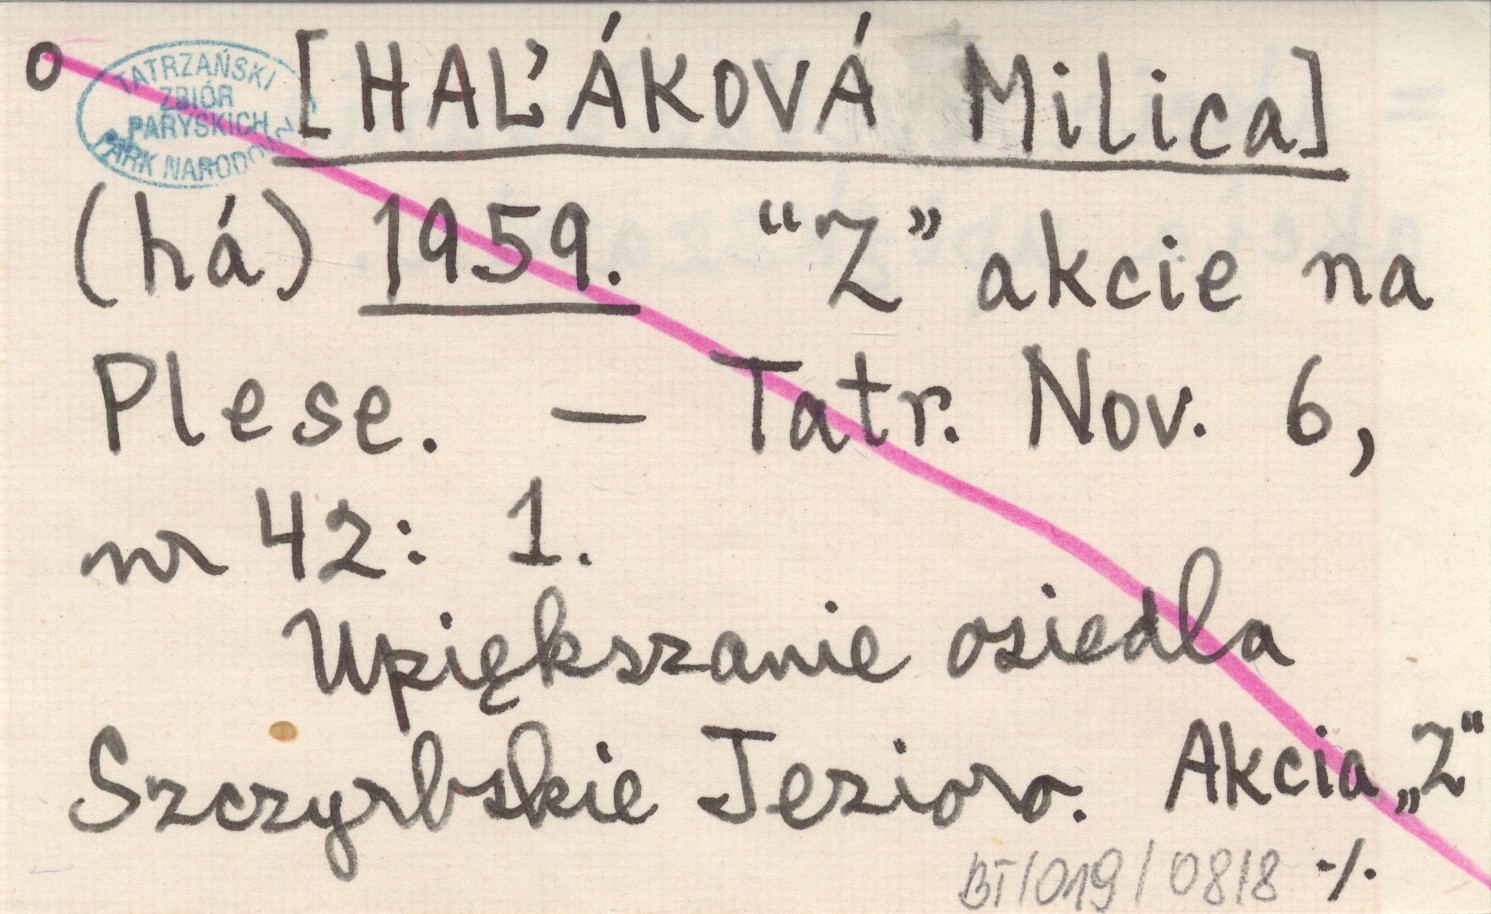 o [HAĽÁKOVÁ Milica]
TATRZAŃSKI
ZBIÓR
PARYSKICH
PARK NARODOW
(há) 1959. “Z” akcie na
Plese. — Tatr. Nov. 6,
nr 42: 1.
Upiększanie osiedla
Szczyrbskie Jezioro. Akcia „Z“
BT/019/0818 ·/.